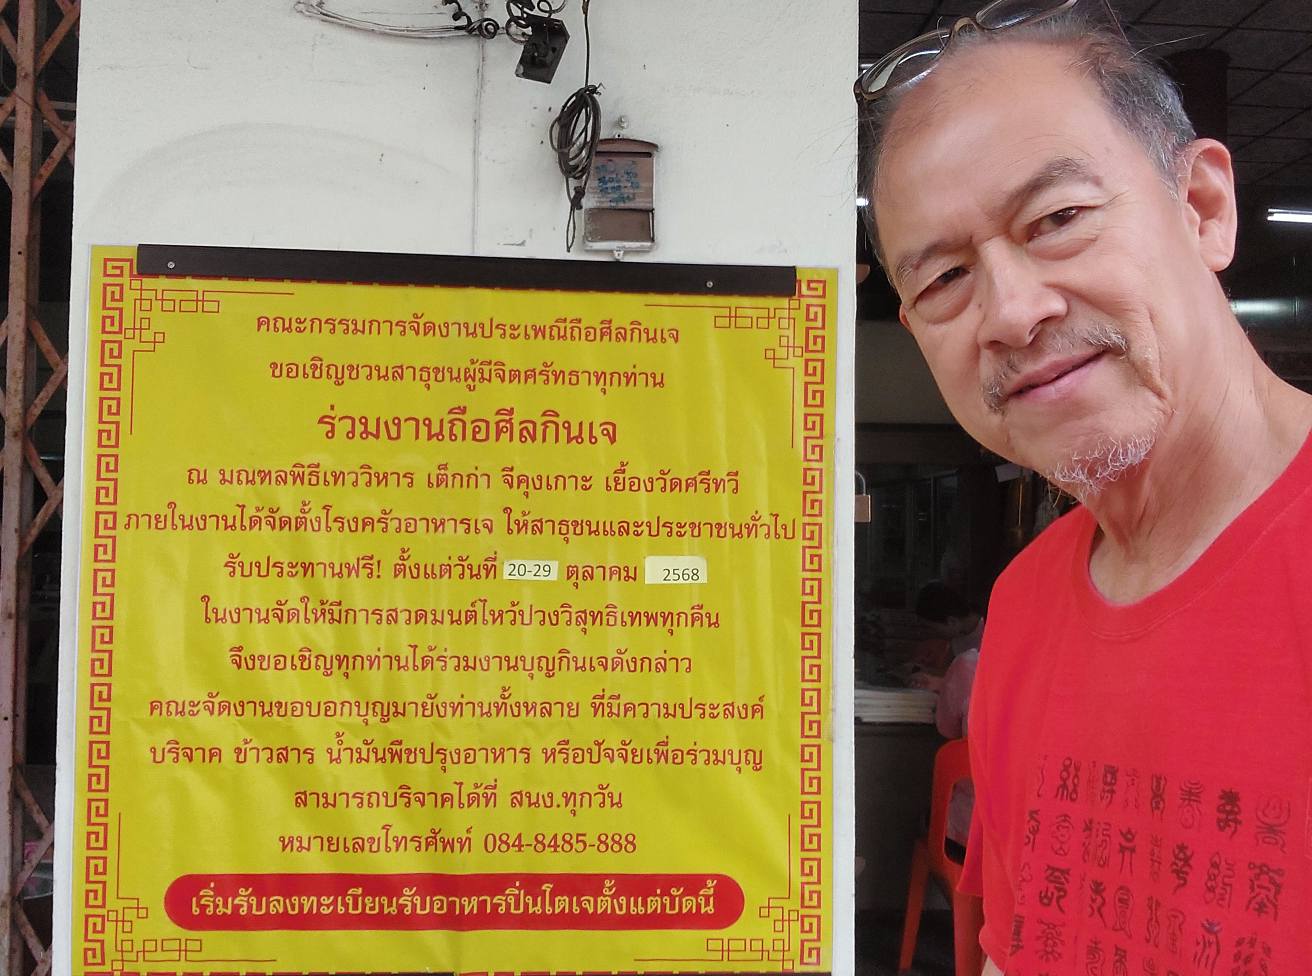 คณะกรรมการจัดงานประเพณีถือศีลกินเจ
ขอเชิญชวนสาธุชนผู้มีจิตศรัทธาทุกท่าน
ร่วมงานถือศีลกินเจ
ณ มณฑลพิธีเทววิหาร เต็กก่า จีคุงเกาะ เยื้องวัดศรีทวี
ภายในงานได้จัดตั้งโรงครัวอาหารเจ ให้สาธุชนและประชาชนทั่วไป
รับประทานฟรี! ตั้งแต่วันที่ 20-29 ตุลาคม 2568
ในงานจัดให้มีการสวดมนต์ไหว้ปวงวิสุทธิเทพทุกคืน
จึงขอเชิญทุกท่านได้ร่วมงานบุญกินเจดังกล่าว
คณะจัดงานขอบอกบุญมายังท่านทั้งหลาย ที่มีความประสงค์
บริจาค ข้าวสาร น้ำมันพืชปรุงอาหาร หรือปัจจัยเพื่อร่วมบุญ
สามารถบริจาคได้ที่ สนง.ทุกวัน
หมายเลขโทรศัพท์ 084-8485-888
เริ่มรับลงทะเบียนรับอาหารปิ่นโตเจตั้งแต่บัดนี้